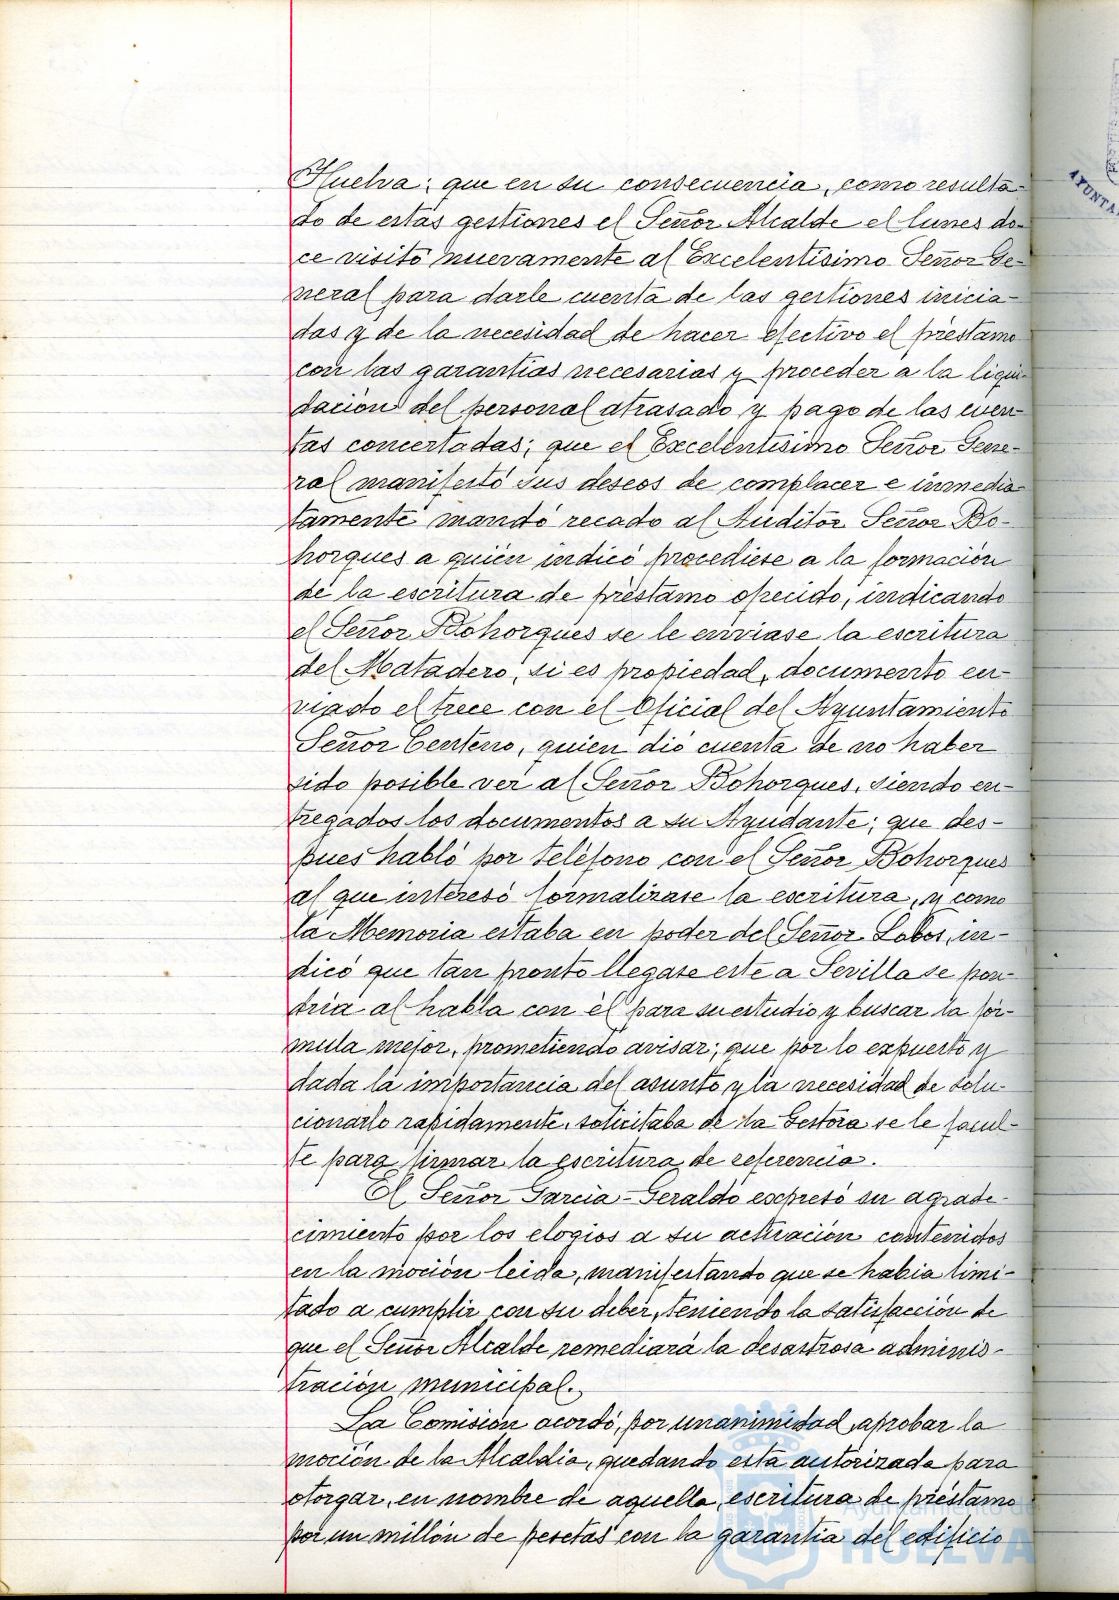 Huelva; que en su consecuencia, como resulta-
do de estas gestiones el Señor Alcalde el lunes do-
ce visitó nuevamente al Excelentisimo Señor Ge-
neral para darle cuenta de las gestiones inicia-
das y de la necesidad de hacer efectivo el préstamo
con las garantias necesarias y proceder a la liqui-
dación del personal atrasado y pago de las cuen-
tas concertadas; que el Excelentisimo Señor Gene-
ral manifestó sus deseos de complacer e inmedia-
tamente mandó recado al Auditor Señor Bo-
horques a quién indicó procediese a la formación
de la escritura de préstamo ofrecido, indicando
el Señor Bohorques se le enviase la escritura
del Matadero, si es propiedad, documento en-
viado el trece con el Oficial del Ayuntamiento
Señor Centeno, quien dió cuenta de no haber
sido posible ver al Señor Bohorques, siendo en-
tregados los documentos a su Ayudante; que des-
pues habló por teléfono con el Señor Bohorques
al que interesó formalizase la escritura, y como
la Memoria estaba en poder del Señor Lobos, in-
dicó que tan pronto llegase este a Sevilla se pon-
dria al habla con él para su estudio y buscar la fór-
mula mejor, prometiendo avisar; que por lo expuesto y
dada la importancia del asunto y la necesidad de solu-
cionarlo rapidamente, solicitaba de la Gestora se le facul-
te para firmar la escritura de referencia.
El Señor Garcia-Geraldo expresó su agrade-
cimiento por los elogios a su actuación contenidos
en la moción leida, manifestando que se habia limi-
tado a cumplir con su deber, teniendo la satisfacción de
que el Señor Alcalde remediará la desastrosa adminis-
tración municipal.
La Comisión acordó, por unanimidad, aprobar la
moción de la Alcaldia, quedando esta autorizada para
otorgar, en nombre de aquella, escritura de préstamo
por un millón de pesetas con la garantia del edificio
Ayuntamiento de
HUELVA
AYUNTA